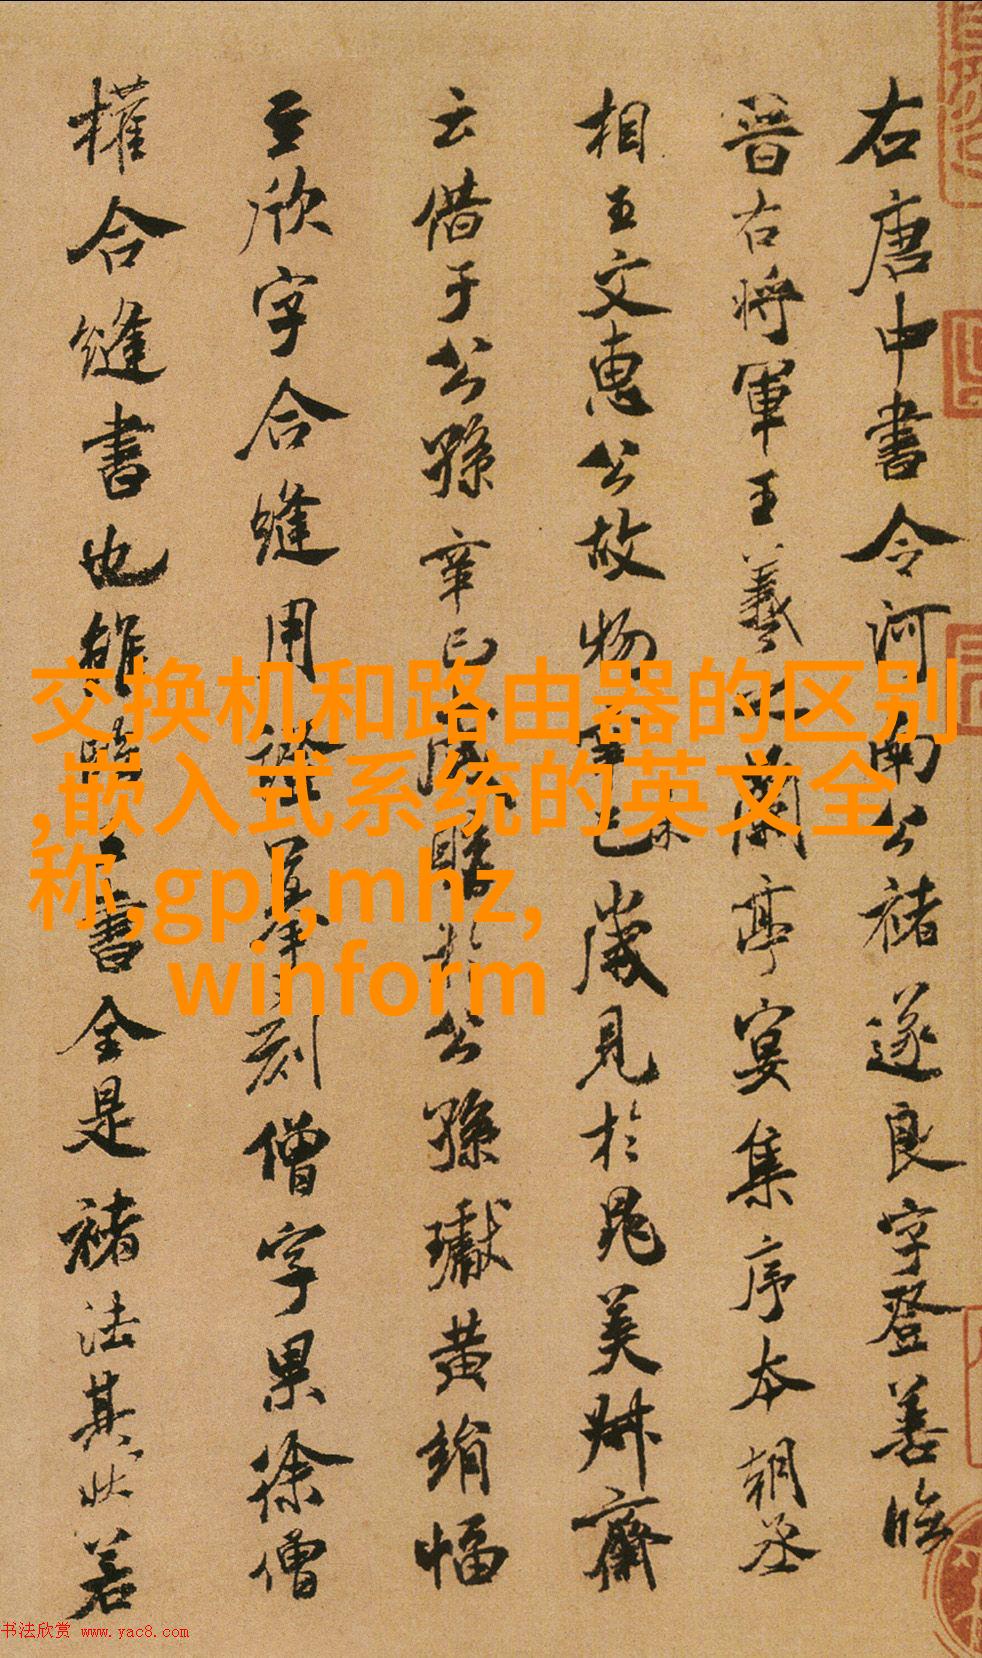 右唐中書令河南公褚遂良字登善臨
晉右將軍王羲之蘭亭宴集序本朝丞
相王文惠公故物辛巳歲見於晁美叔齋
云借于公孫辛巳歲購於公孫瓛黃絹幅
至欣字合縫用證摹刻僧字果徐僧
權合縫書也雖臨王書全是褚法其狀若
交换机和路由器的区别
,嵌入式系统的英文全
称,gpl,mhz,
winform
书法欣赏 www.yac8.com